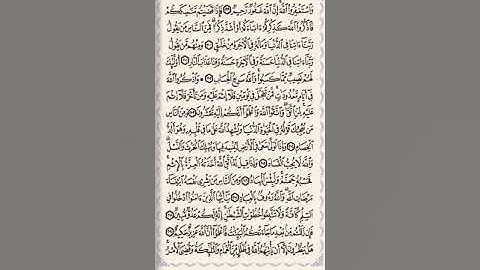 وَٱسْتَغْفِرُوا۟ ٱللَّهَ إِنَّ ٱللَّهَ غَفُورٌ رَّحِيمٌ ۝ فَإِذَا قَضَيْتُم مَّنَـٰسِكَكُمْ
فَٱذْكُرُوا۟ ٱللَّهَ كَذِكْرِكُمْ ءَابَآءَكُمْ أَوْ أَشَدَّ ذِكْرًا فَمِنَ ٱلنَّاسِ مَن يَقُولُ
رَبَّنَآ ءَاتِنَا فِى ٱلدُّنْيَا وَمَا لَهُۥ فِى ٱلْـَٔاخِرَةِ مِنْ خَلَـٰقٍ ۝ وَمِنْهُم مَّن يَقُولُ
رَبَّنَآ ءَاتِنَا فِى ٱلدُّنْيَا حَسَنَةً وَفِى ٱلْـَٔاخِرَةِ حَسَنَةً وَقِنَا عَذَابَ ٱلنَّارِ ۝ أُو۟لَـٰٓئِكَ
لَهُمْ نَصِيبٌ مِّمَّا كَسَبُوا۟ وَٱللَّهُ سَرِيعُ ٱلْحِسَابِ ۝ وَٱذْكُرُوا۟ ٱللَّهَ
فِىٓ أَيَّامٍ مَّعْدُودَٰتٍ فَمَن تَعَجَّلَ فِى يَوْمَيْنِ فَلَآ إِثْمَ عَلَيْهِ وَمَن تَأَخَّرَ فَلَآ إِثْمَ
عَلَيْهِ لِمَنِ ٱتَّقَىٰ وَٱتَّقُوا۟ ٱللَّهَ وَٱعْلَمُوٓا۟ أَنَّكُمْ إِلَيْهِ تُحْشَرُونَ ۝ وَمِنَ ٱلنَّاسِ
مَن يُعْجِبُكَ قَوْلُهُۥ فِى ٱلْحَيَوٰةِ ٱلدُّنْيَا وَيُشْهِدُ ٱللَّهَ عَلَىٰ مَا فِى قَلْبِهِۦ وَهُوَ أَلَدُّ
ٱلْخِصَامِ ۝ وَإِذَا تَوَلَّىٰ سَعَىٰ فِى ٱلْأَرْضِ لِيُفْسِدَ فِيهَا وَيُهْلِكَ ٱلْحَرْثَ وَٱلنَّسْلَ
وَٱللَّهُ لَا يُحِبُّ ٱلْفَسَادَ ۝ وَإِذَا قِيلَ لَهُ ٱتَّقِ ٱللَّهَ أَخَذَتْهُ ٱلْعِزَّةُ بِٱلْإِثْمِ
فَحَسْبُهُۥ جَهَنَّمُ وَلَبِئْسَ ٱلْمِهَادُ ۝ وَمِنَ ٱلنَّاسِ مَن يَشْرِى نَفْسَهُ ٱبْتِغَآءَ
مَرْضَاتِ ٱللَّهِ وَٱللَّهُ رَءُوفٌۢ بِٱلْعِبَادِ ۝ يَـٰٓأَيُّهَا ٱلَّذِينَ ءَامَنُوا۟ ٱدْخُلُوا۟ فِى
ٱلسِّلْمِ كَآفَّةً وَلَا تَتَّبِعُوا۟ خُطُوَٰتِ ٱلشَّيْطَـٰنِ إِنَّهُۥ لَكُمْ عَدُوٌّ مُّبِينٌ ۝
فَإِن زَلَلْتُم مِّنۢ بَعْدِ مَا جَآءَتْكُمُ ٱلْبَيِّنَـٰتُ فَٱعْلَمُوٓا۟ أَنَّ ٱللَّهَ عَزِيزٌ حَكِيمٌ ۝
هَلْ يَنظُرُونَ إِلَّآ أَن يَأْتِيَهُمُ ٱللَّهُ فِى ظُلَلٍ مِّنَ ٱلْغَمَامِ وَٱلْمَلَـٰٓئِكَةُ وَقُضِىَ ٱلْأَمْرُ